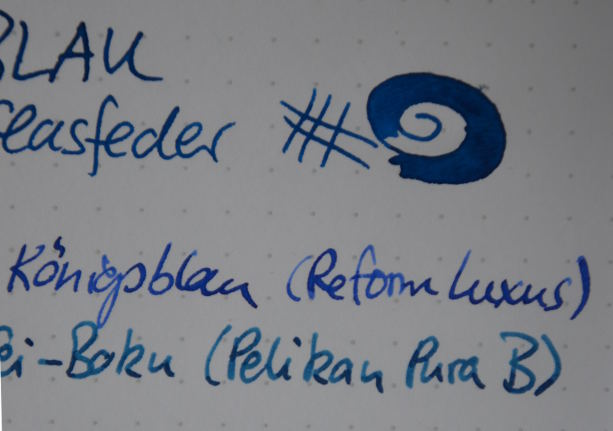 BLAU
Glasfeder
Königsblau (Reform Luxus)
ei-Boku (Pelikan Pura B)